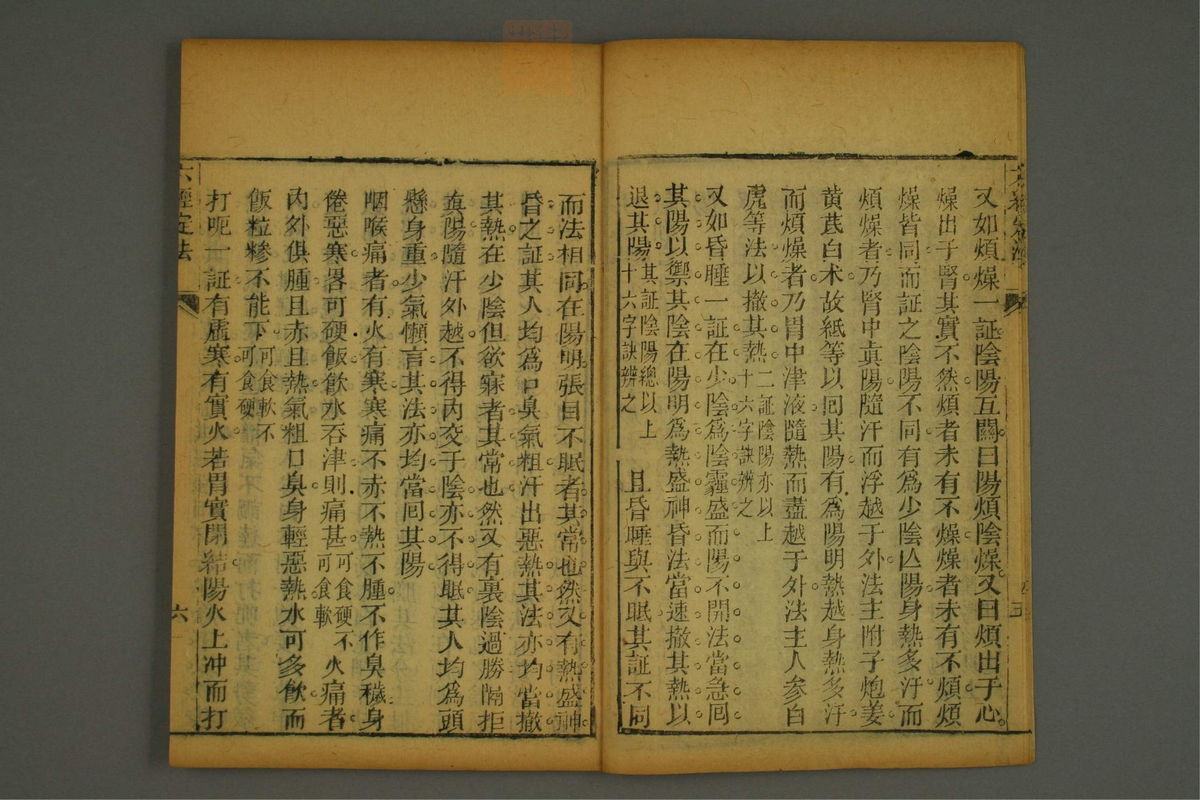 又如煩燥一証陰陽互關曰陽煩陰燥又曰煩出于心
燥出于腎其實不然煩者未有不燥燥者未有不煩煩
燥皆同而証之陰陽不同有為少陰亾陽身熱多汗而
煩燥者乃腎中眞陽隨汗而浮越于外法主附子炮姜
黄茋白术故紙等以囘其陽有為陽明熱越身熱多汗
而煩燥者乃胃中津液隨熱而盡越于外法主人参白
虎等法以撤其熱二証陰陽亦以上
十六字訣辨之
又如昏睡一証在少陰爲陰霾盛而陽不開法當急囘
其陽以禦其陰在陽明爲熱盛神昏法當速撤其熱以
退其陽其証陰陽總以上
十六字訣辨之
且昏睡與不眠其証不同
而法相同在陽明張目不眠者其常也然又有熱盛神
昏之証其人均爲口臭氣粗汗出惡熱其法亦均當撤
其熱在少陰但欲寐者其常也然又有裏陰過勝隔拒
眞陽隨汗外越不得内交于陰亦不得眠其人均為頭
懸身重少氣懶言其法亦均當囘其陽
咽喉痛者有火有寒寒痛不赤不熱不腫不作臭穢身
倦惡寒畧可硬飯飲水吞津則痛甚可食硬不
可食軟
火痛者
内外俱腫且赤且熱氣粗口臭身輕惡熱水可多飲而
飯粒糝不能下可食軟不
可食硬
打呃一証有虛寒有實火若胃實閉結陽火上冲而打
六經定法
六